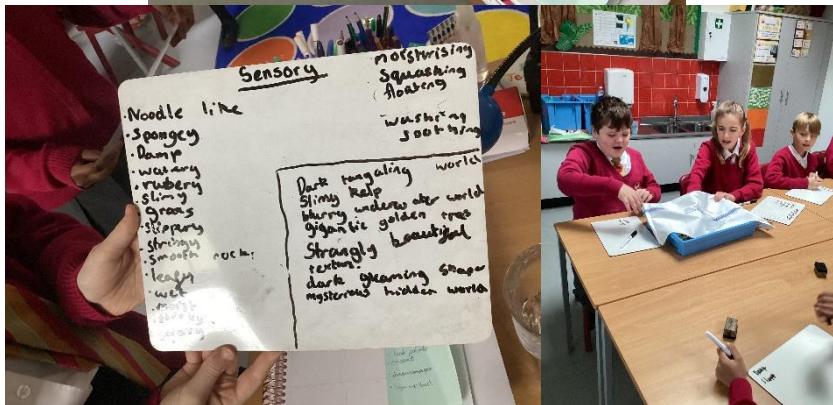 Sensory
Noodle like
Spongey
Damp
watery
rubery
slimy
grass
slippery
stringy
smooth rock
leafy
wet
moist
moisterising
squashing
floating
washing
soothing
Dark tangaling world
Slimy kelp
blurry underwater world
gigantic golden tree
Strangly beautiful
texture
dark gleaming shapes
mysterious hidden world